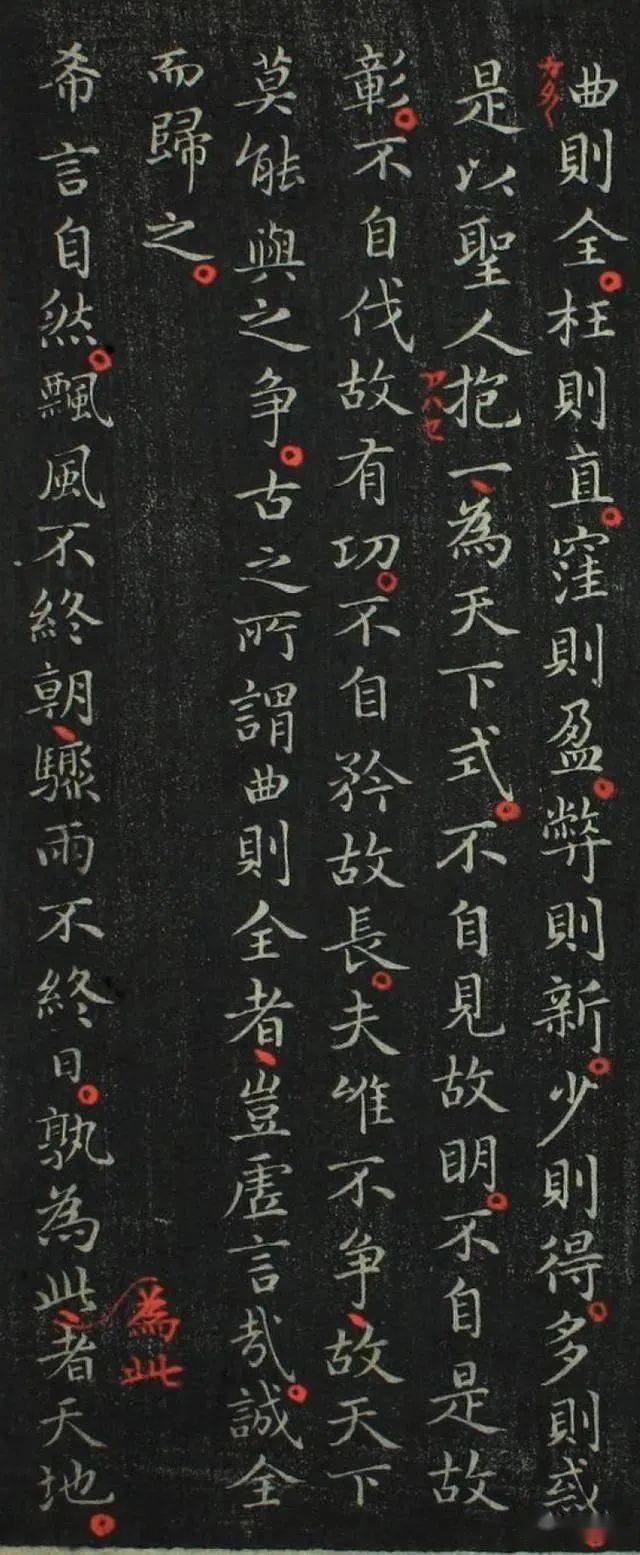 曲則全枉則直窪則盈弊則新少則得多則惑
是以聖人抱一為天下式不自見故明不自是故
彰不自伐故有功不自矜故長夫唯不争故天下
莫能與之争古之所謂曲則全者豈虚言哉誠全
而歸之
希言自然飄風不終朝驟雨不終日孰為此者天地
為此